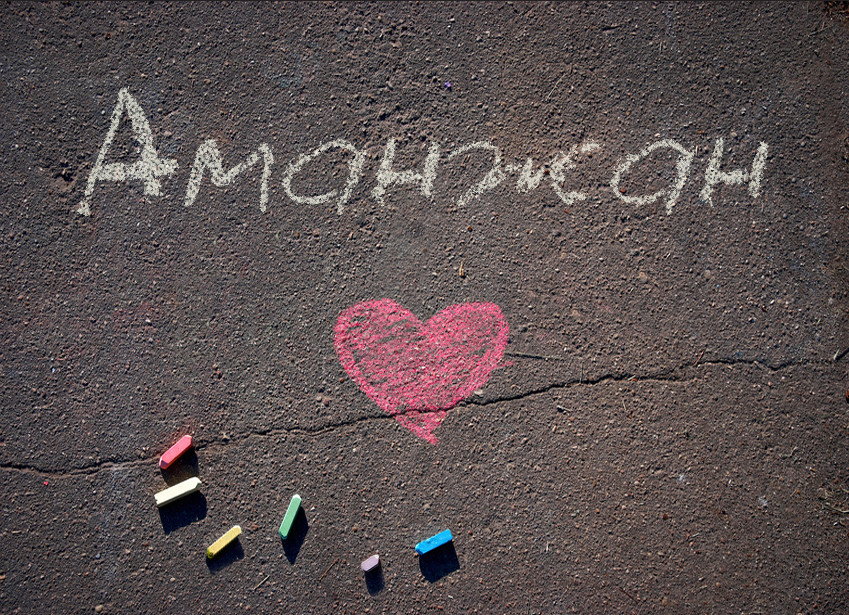 Аманжан